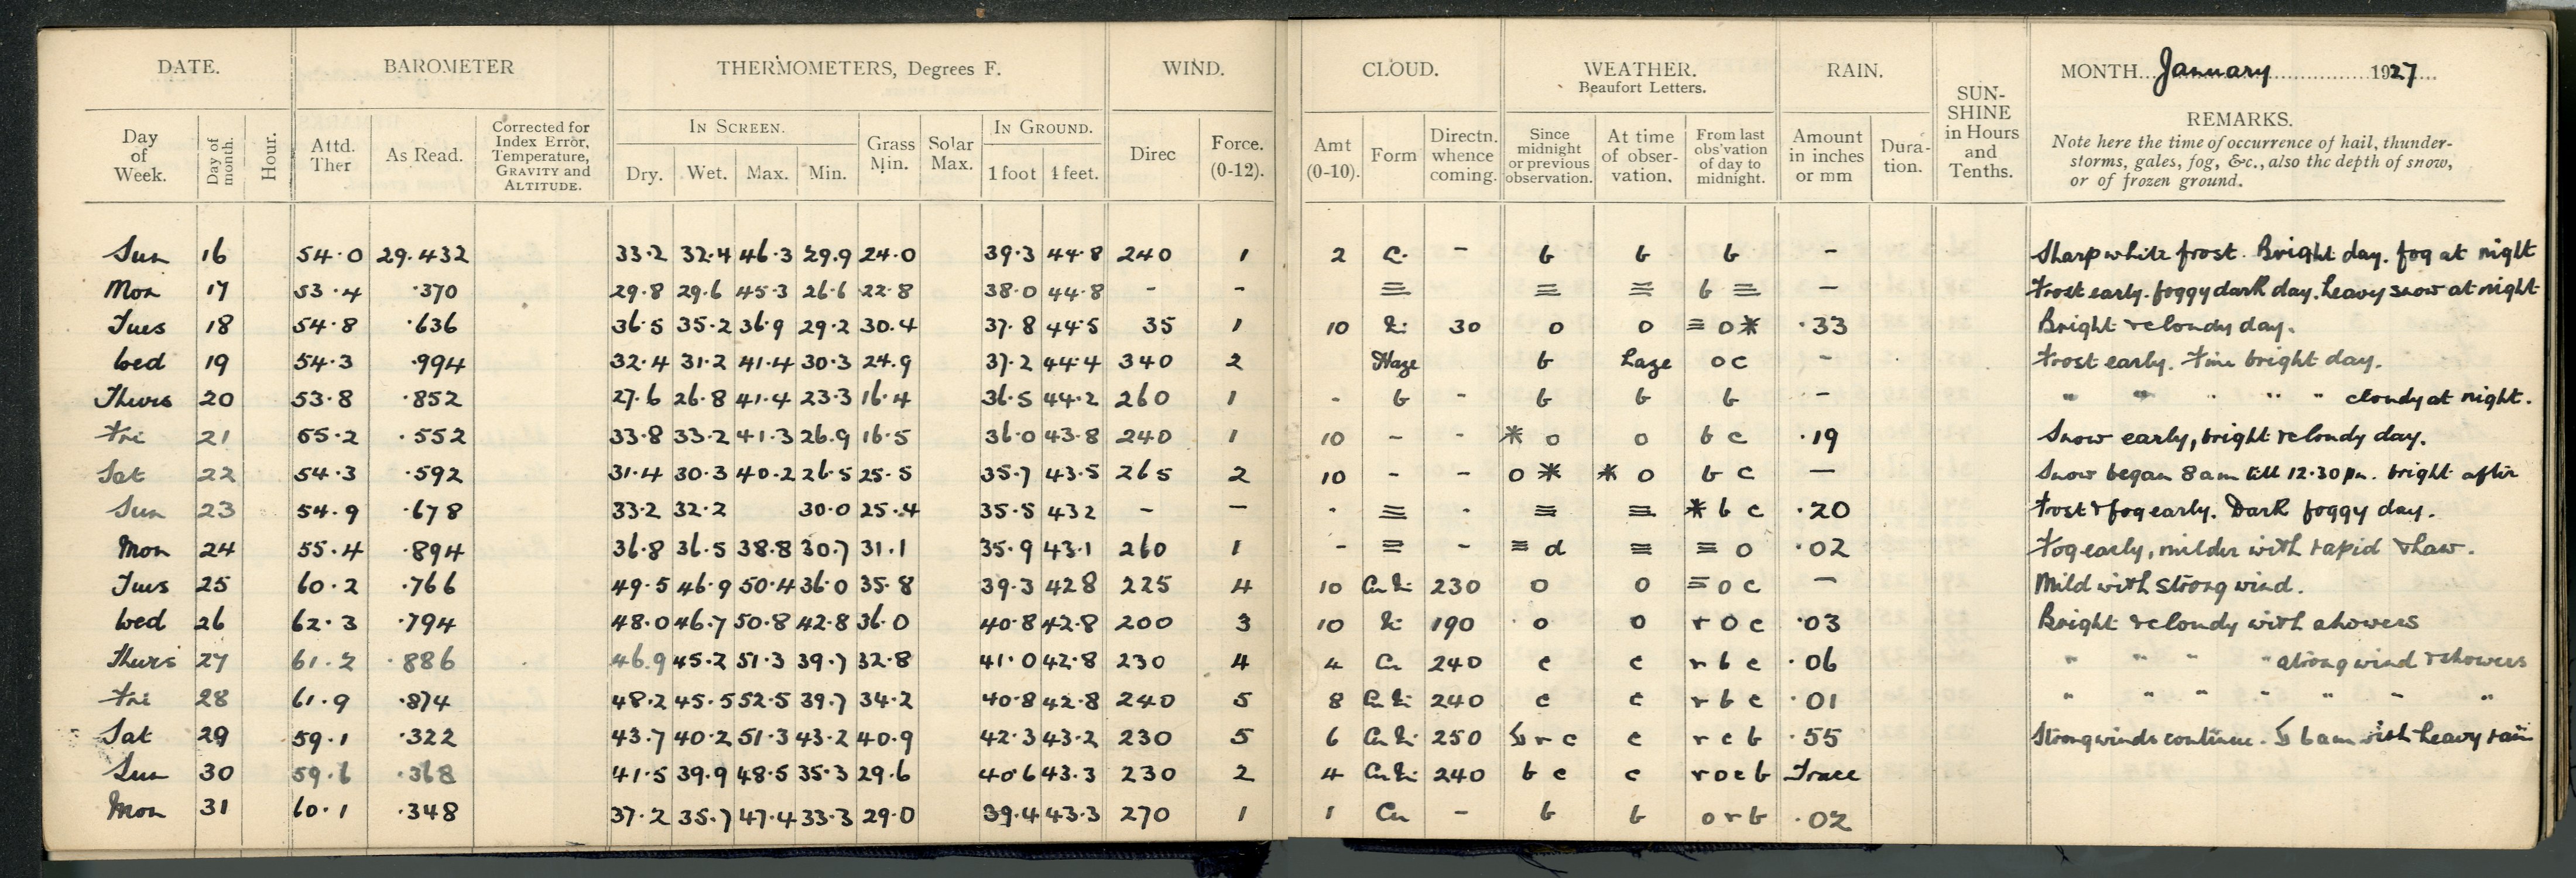 DATE. BAROMETER THERMOMETERS, Degrees F. WIND. CLOUD. WEATHER. Beaufort Letters. RAIN. SUN-SHINE in Hours and Tenths. MONTH January 1927
REMARKS.
Note here the time of occurrence of hail, thunder-
storms, gales, fog, &c., also the depth of snow,
or of frozen ground.
IN SCREEN. IN GROUND.
Day of Week. Day of month. Hour. Attd. Ther As Read. Corrected for Index Error, Temperature, GRAVITY and ALTITUDE. Dry. Wet. Max. Min. Grass Min. Solar Max. 1 foot 4 feet. Direc Force. (0-12). Amt (0-10). Form Directn. whence coming. Since midnight or previous observation. At time of obser-vation. From last obs'vation of day to midnight. Amount in inches or mm Dura-tion.
Sun 16 54.0 29.432 33.2 32.4 46.3 29.9 24.0 39.3 44.8 240 1 2 C. - b b b - Sharp white frost. Bright day. fog at night
Mon 17 53.4 .370 29.8 29.6 45.3 26.6 22.8 38.0 44.8 - - ≡ ≡ ≡ b ≡ - Frost early. foggy dark day. heavy snow at night
Tues 18 54.8 .636 36.5 35.2 36.9 29.2 30.4 37.8 44.5 35 1 10 30 o o ≡ o * .33 Bright & cloudy day.
Wed 19 54.3 .994 32.4 31.2 41.4 30.3 24.9 37.2 44.4 340 2 Haze b haze o c - Frost early. Fine bright day.
Thurs 20 53.8 .852 27.6 26.8 41.4 23.3 16.4 36.5 44.2 260 1 - b - b b b - " " " " " cloudy at night.
Fri 21 55.2 .552 33.8 33.2 41.3 26.9 16.5 36.0 43.8 240 1 10 - - * o o b c .19 Snow early, bright & cloudy day.
Sat 22 54.3 .592 31.4 30.3 40.2 26.5 25.5 35.7 43.5 265 2 10 - - o * * o b c - Snow began 8am till 12.30pm. bright after
Sun 23 54.9 .678 33.2 32.2 30.0 25.4 35.5 432 - - - ≡ - ≡ ≡ * b c .20 Frost & fog early. Dark foggy day.
Mon 24 55.4 .894 36.8 36.5 38.8 30.7 31.1 35.9 43.1 260 1 - ≡ - ≡ d ≡ ≡ o .02 Fog early, milder with rapid thaw.
Tues 25 60.2 .766 49.5 46.9 50.4 36.0 35.8 39.3 428 225 4 10 230 o o ≡ o c - Mild with strong wind.
Wed 26 62.3 .794 48.0 46.7 50.8 42.8 36.0 40.8 42.8 200 3 10 190 o o r o c .03 Bright & cloudy with showers
Thurs 27 61.2 .886 46.9 45.2 51.3 39.7 32.8 41.0 42.8 230 4 4 Cu 240 c c r b c .06 " " " " strong wind & showers
Fri 28 61.9 .874 48.2 45.5 52.5 39.7 34.2 40.8 42.8 240 5 8 240 c c r b c .01 " " " " " " "
Sat 29 59.1 .322 43.7 40.2 51.3 43.2 40.9 42.3 43.2 230 5 6 250 r c c r c b .55 Strong winds continue. 6am with heavy rain
Sun 30 59.6 .368 41.5 39.9 48.5 35.3 29.6 40.6 43.3 230 2 4 240 b c c r o c b Trace
Mon 31 60.1 .348 37.2 35.7 47.4 33.3 29.0 39.4 43.3 270 1 1 Cu - b b o r b .02